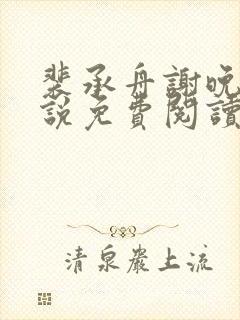 裴承舟謝晚
說免費閱讀
清泉巖上流